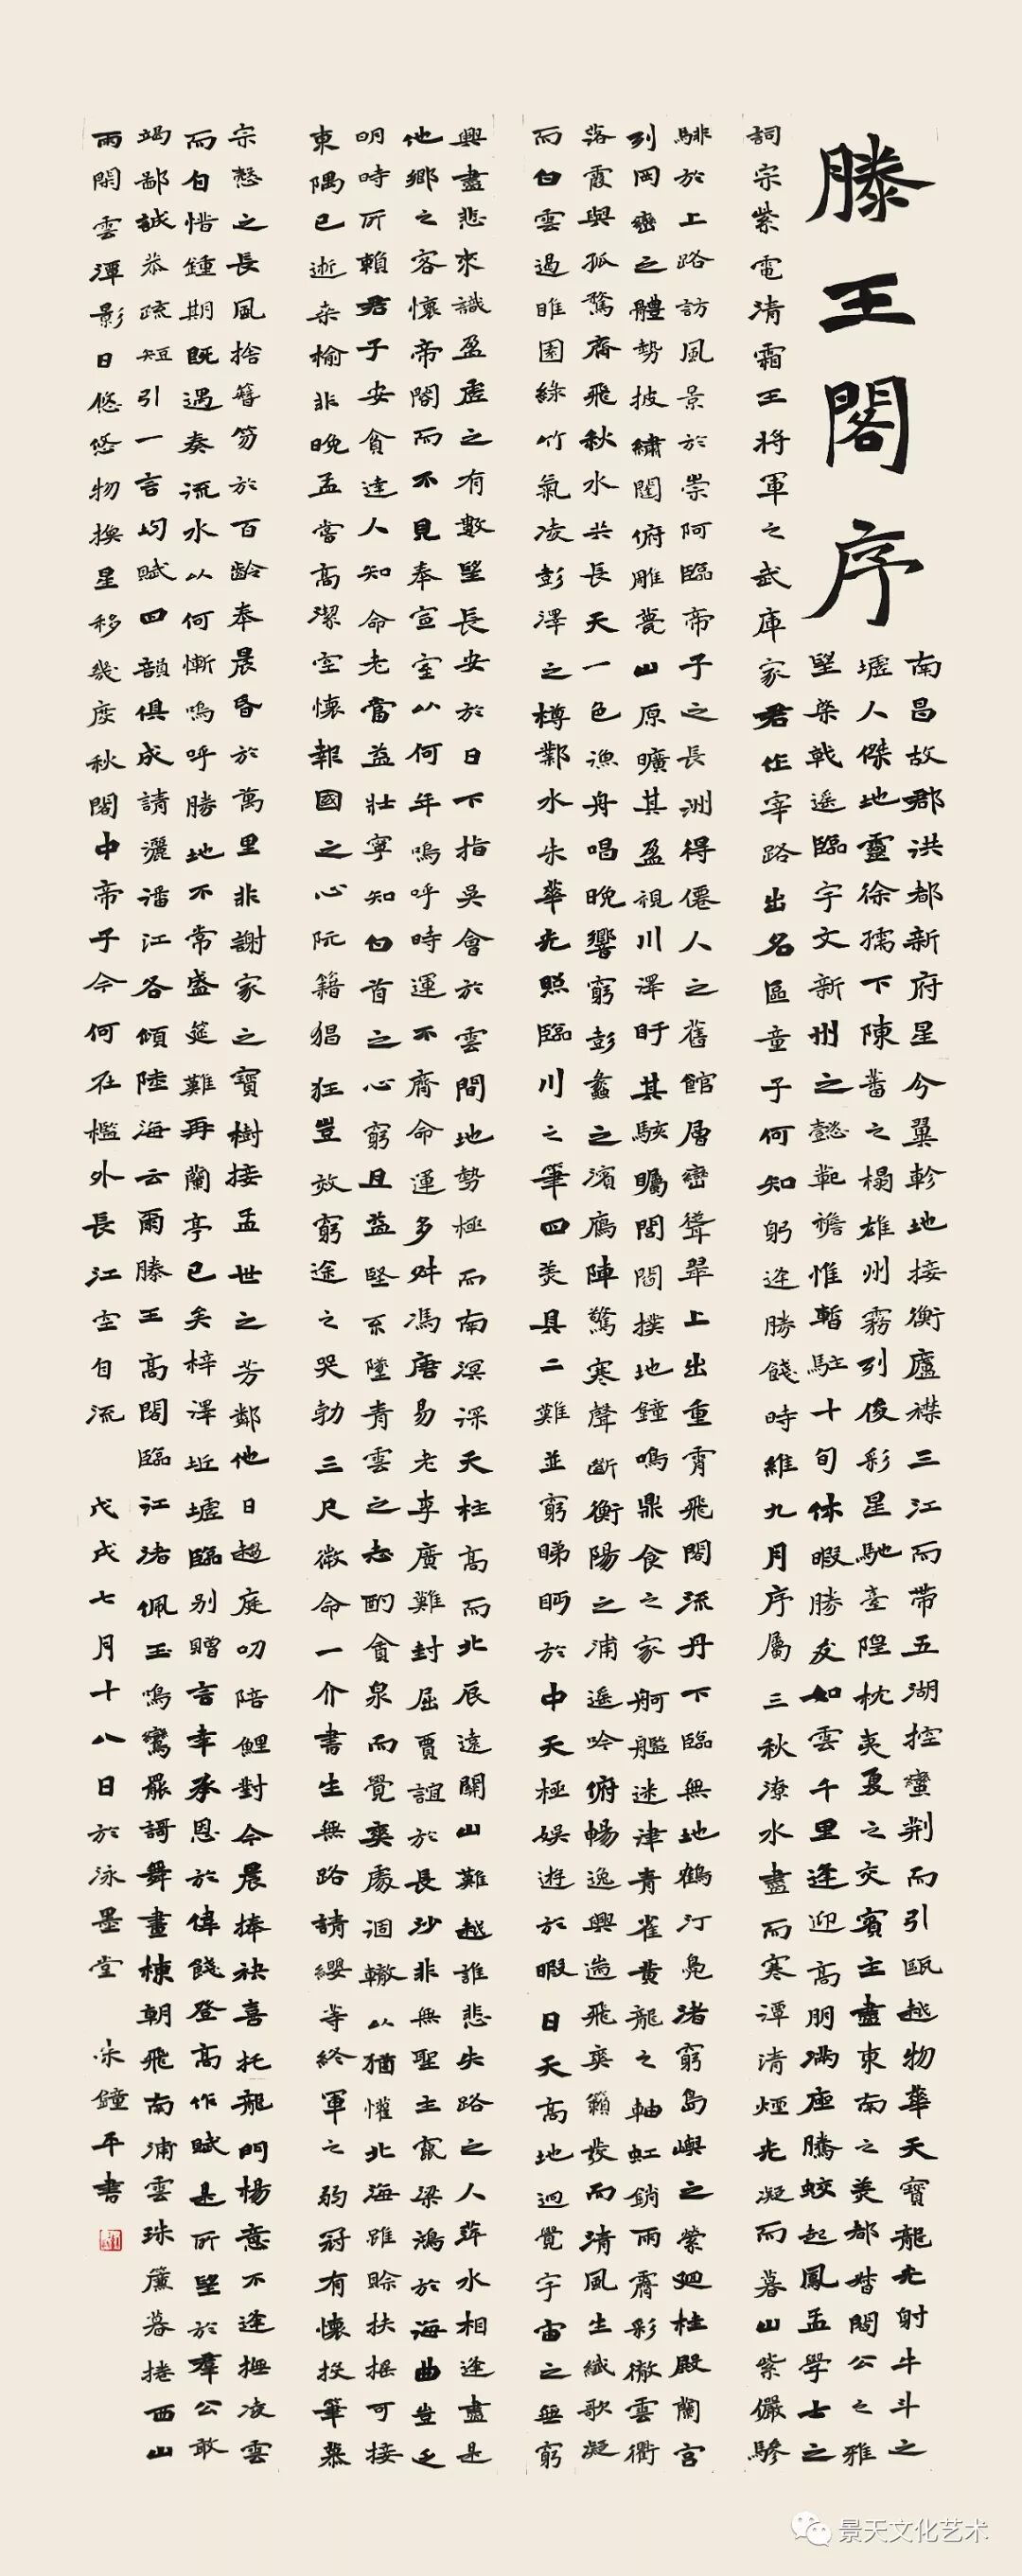 滕王閣序
南昌故郡洪都新府星分翼軫地接衡廬襟三江而帶五湖控蠻荊而引甌越物華天寶龍光射牛斗之
墟人傑地靈徐孺下陳蕃之榻雄州霧列俊彩星馳臺隍枕夷夏之交賓主盡東南之美都督閻公之雅
望棨戟遙臨宇文新州之懿範襜惟暫駐十旬休暇勝友如雲千里逢迎高朋滿座騰蛟起鳳孟學士之
詞宗紫電清霜王將軍之武庫家君作宰路出名區童子何知躬逢勝餞時維九月序屬三秋潦水盡而寒潭清煙光凝而暮山紫儼驂
騑於上路訪風景於崇阿臨帝子之長洲得僊人之舊館層巒聳翠上出重霄飛閣流丹下臨無地鶴汀鳧渚窮島嶼之縈迴桂殿蘭宮
列岡巒之體勢披繡闥俯雕甍山原曠其盈視川澤盱其駭矚閭閻撲地鐘鳴鼎食之家舸艦迷津青雀黃龍之軸虹銷雨霽彩徹雲衢
落霞與孤鶩齊飛秋水共長天一色漁舟唱晚響窮彭蠡之濱鴈陣驚寒聲斷衡陽之浦遙吟俯暢逸興遄飛爽籟發而清風生纖歌凝
而白雲遏睢園綠竹氣凌彭澤之樽鄴水朱華光照臨川之筆四美具二難並窮睇眄於中天極娛遊於暇日天高地迥覺宇宙之無窮
興盡悲來識盈虛之有數望長安於日下指吳會於雲間地勢極而南溟深天柱高而北辰遠關山難越誰悲失路之人萍水相逢盡是
他鄉之客懷帝閽而不見奉宣室以何年嗚呼時運不齊命運多舛馮唐易老李廣難封屈賈誼於長沙非無聖主竄梁鴻於海曲豈乏
明時所賴君子安貧達人知命老當益壯寧知白首之心窮且益堅不墜青雲之志酌貪泉而覺爽處涸轍以猶懽北海雖賒扶搖可接
東隅已逝桑榆非晚孟嘗高潔空懷報國之心阮籍猖狂豈效窮途之哭勃三尺微命一介書生無路請纓等終軍之弱冠有懷投筆慕
宗愨之長風捨簪笏於百齡奉晨昏於萬里非謝家之寶樹接孟世之芳鄰他日趨庭叨陪鯉對今晨捧袂喜托龍門楊意不逢撫凌雲
而自惜鍾期既遇奏流水以何慚嗚呼勝地不常盛筵難再蘭亭已矣梓澤丘墟臨別贈言幸承恩於偉餞登高作賦是所望於羣公敢
竭鄙誠恭疏短引一言均賦四韻俱成請灑潘江各傾陸海云爾滕王高閣臨江渚佩玉鳴鸞罷歌舞畫棟朝飛南浦雲珠簾暮捲西山
雨閑雲潭影日悠悠物換星移幾度秋閣中帝子今何在檻外長江空自流 戊戌七月十八日於泳墨堂 朱鐘平書
景天文化艺术